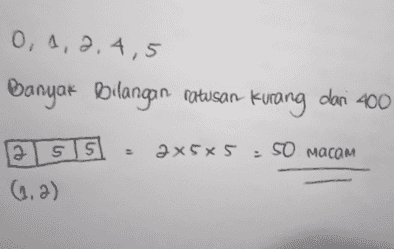 0, 1, 2, 4, 5
Banyak Bilangan ratusan kurang dari 400
2 5 5 = 2 x 5 x 5 = 50 MACAM
(1, 2)